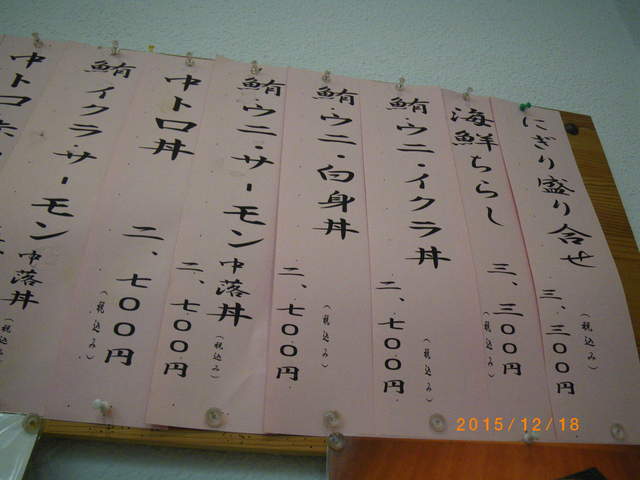 にぎり盛り合せ
三、三〇〇円
(税込み)
海鮮ちらし
三、三〇〇円
(税込み)
鮪ウニ・イクラ丼
二、七〇〇円
(税込み)
鮪ウニ・白身丼
二、七〇〇円
(税込み)
鮪ウニ・サーモン中落丼
二、七〇〇円
(税込み)
中トロ丼
二、七〇〇円
(税込み)
鮪イクラ・サーモン中落丼
中トロ
2015/12/18